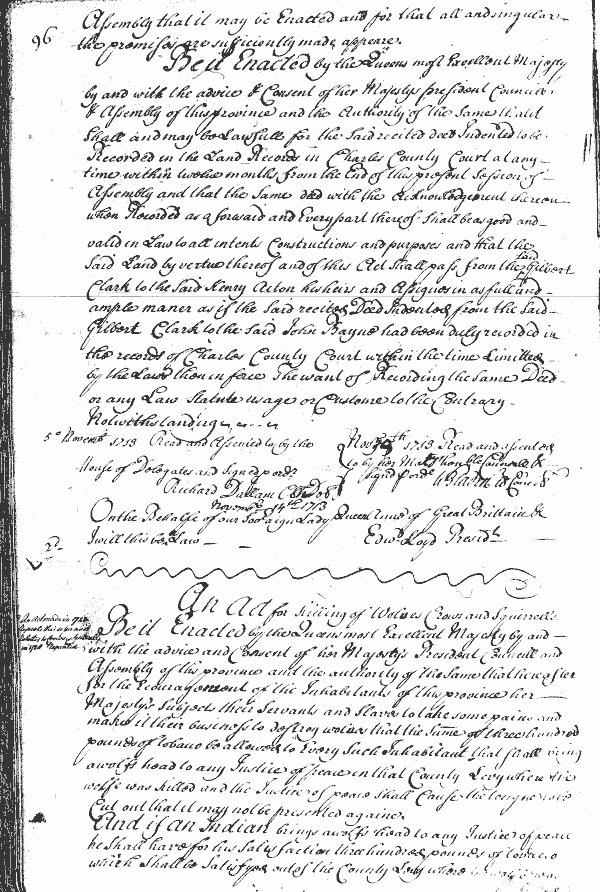 96
Assembly that it may be Enacted and for that all and singular
the premises are sufficiently made appeare.
Be it Enacted by the Queens most Excellent Majesty
by and with the advice & Consent of her Majestys president Councill
& Assembly of this province and the Authority of the Same that it
Shall and may be Lawfull for the Said recited deed Indented to be
Recorded in the Land Records in Charles County Court at any
time within twelve months from the End of this present Session of
Assembly and that the Same deed with the Acknowledgement thereon
when Recorded as aforesaid and Every part thereof Shall be as good and
valid in Law to all intents Constructions and purposes and that the
Said Land by vertue thereof and of this Act Shall pass from the said Gilbert
Clark to the Said Henry Acton his heirs and Assignes in as full and
ample maner as if the Said recited Deed Indented from the Said
Gilbert Clark to the Said John Bayne had been duly recorded in
the records of Charles County Court within the time Limitted
by the Laws then in force The want of Recording the Same Deed
or any Law Statute usage or Custome to the Contrary
Notwithstanding
5º Novembr 1713 Read and Assented to by the
House of Delegates and Signed p ordr
Richard Dallam Cl Ho Del
Novr 5th 1713 Read and assented
to by her Matys honble Councill &
signd p ordr
Novembr 14th 1713
On the Behalfe of our Soveraign Lady Queen Anne of Great Brittain &c
I will this be a Law
Edwd Lloyd Presidt
2d
An Act for killing of Wolves Crows and Squirrells
An Act made in 1728
Repeals this
in 1728 Repealed
Be it Enacted by the Queens most Excellent Majesty by and
with the advice and Consent of her Majestys President Councill and
Assembly of this province and the authority of the Same that hereafter
for the Encouragement of the Inhabitants of this province her
Majestys Subjects their Servants and Slaves to take some pains and
make it their business to destroy wolves that the Sume of three hundred
pounds of tobacco be allowed to Every Such Inhabitant that shall bring
a wolfs head to any Justice of peace in that County Levy where the
wolfe was killed and the Justice of peace shall Cause the tongue to be
Cut out that it may not be presented againe
And if an Indian brings a wolfs head to any Justice of peace
he Shall have for his Satisfaction three hundred pounds of tobacco
which Shall be Satisfyed out of the County Levy where